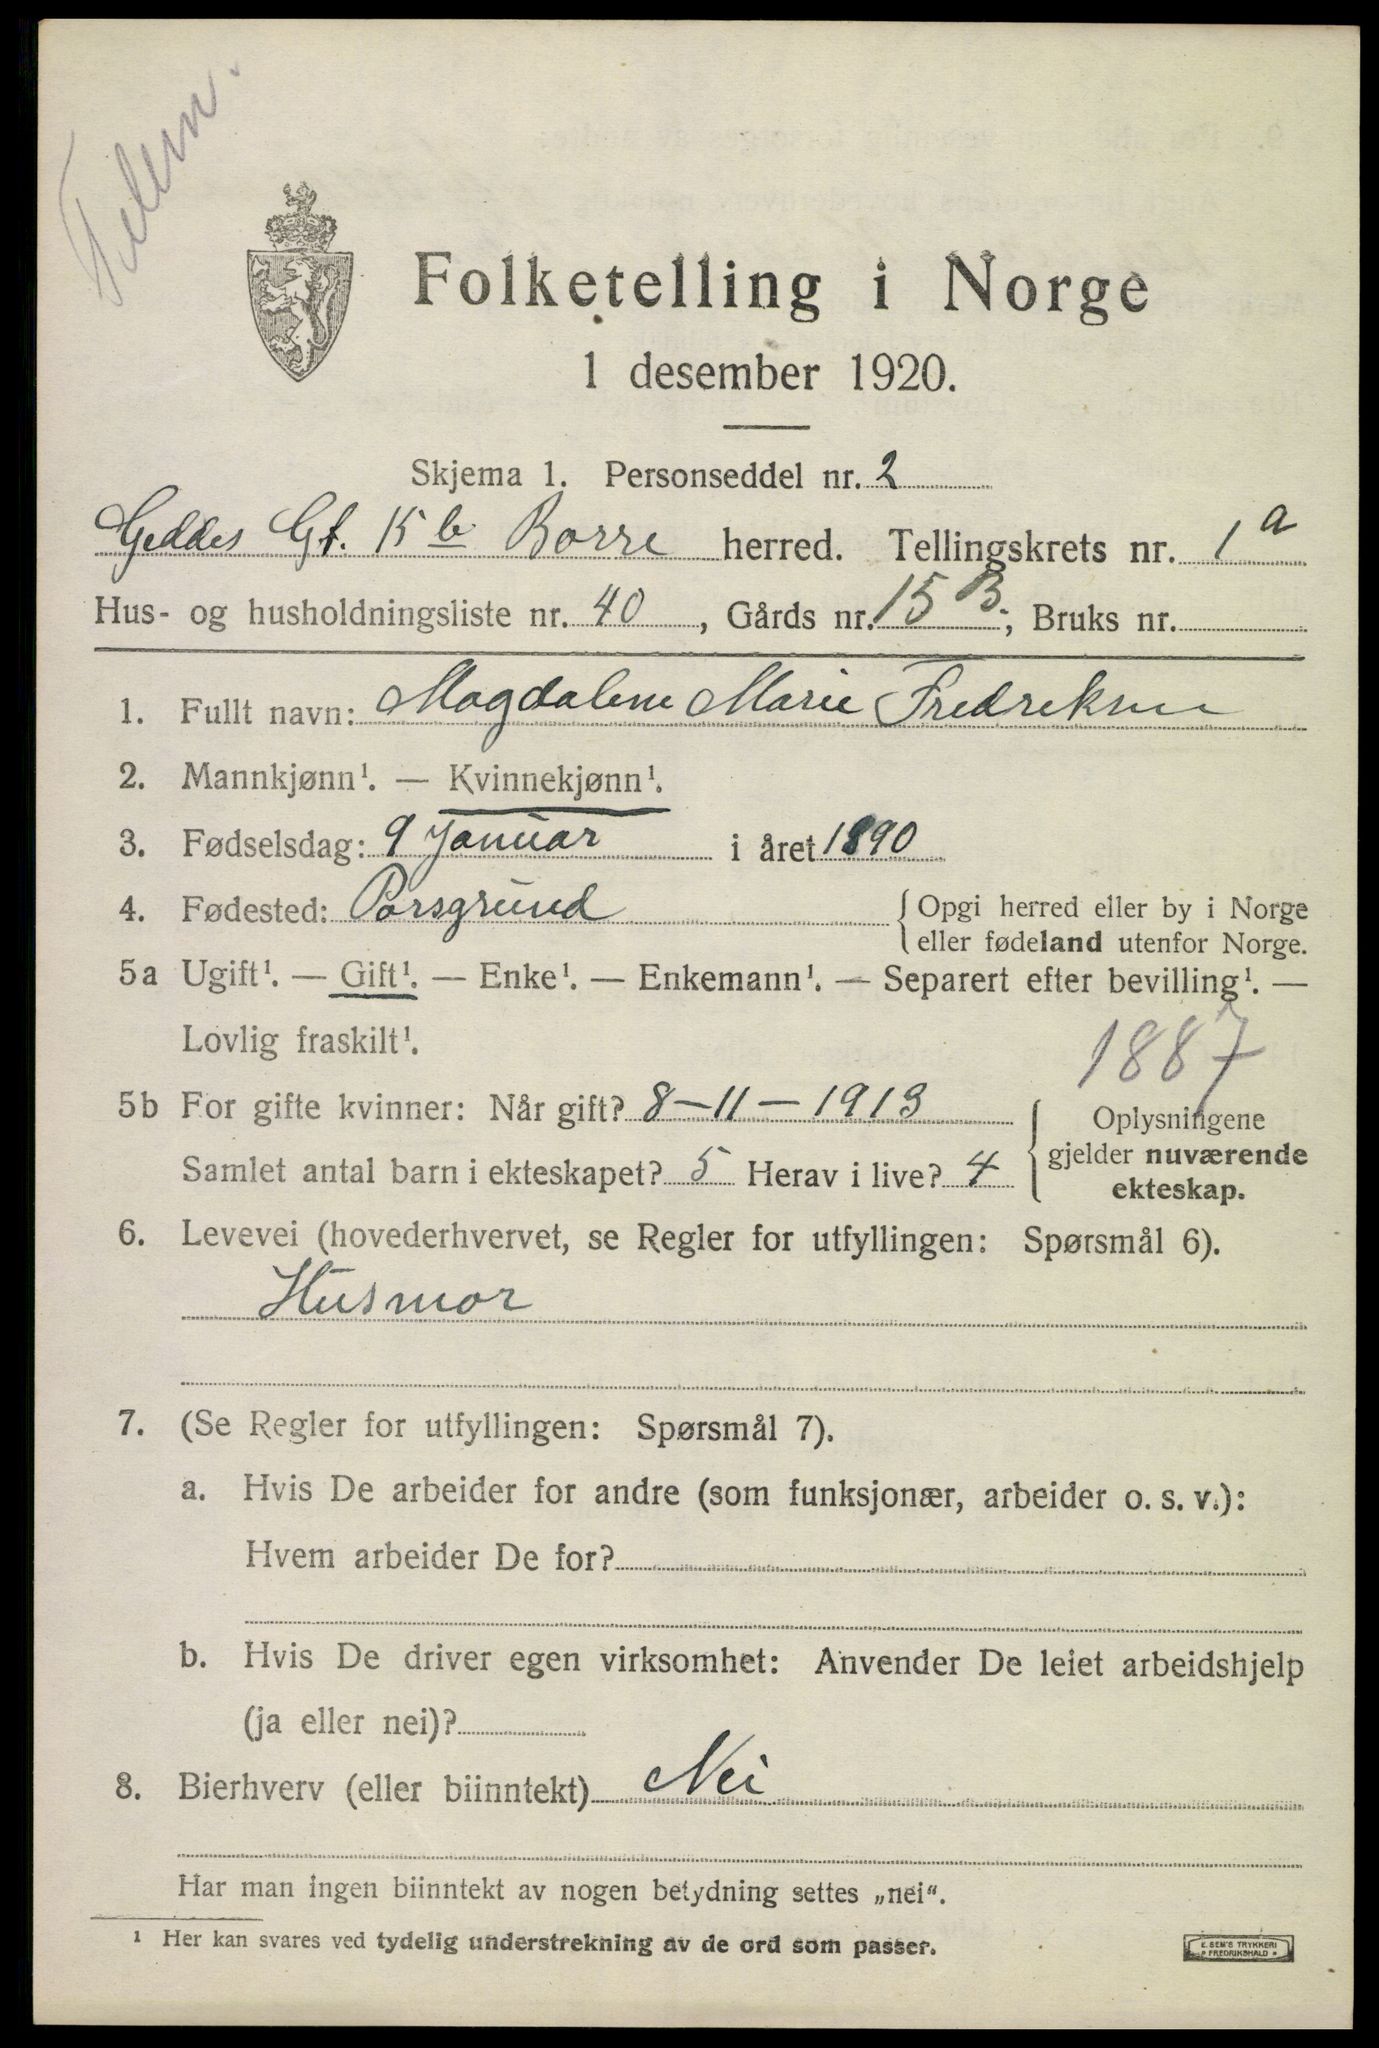 Telem.
Folketelling i Norge
1 desember 1920.
Skjema 1. Personseddel nr. 2
Geddes Gt. 15 b Borre herred. Tellingskrets nr. 1 a
Hus- og husholdningsliste nr. 40, Gårds nr. 15 B.; Bruks nr.
1. Fullt navn: Magdalene Marie Fredriksen
2. Mannkjønn¹. — Kvinnekjønn¹.
3. Fødselsdag: 9 Januar i året 1890
4. Fødested: Porsgrund { Opgi herred eller by i Norge
eller fødeland utenfor Norge.
5a Ugift¹. — Gift¹. — Enke¹. — Enkemann¹. — Separert efter bevilling¹. —
Lovlig fraskilt¹.
1887
5b For gifte kvinner: Når gift? 8-11-1913
Samlet antal barn i ekteskapet? 5 Herav i live? 4
Oplysningene
gjelder nuværende
ekteskap.
6. Levevei (hovederhvervet, se Regler for utfyllingen: Spørsmål 6).
Husmor
7. (Se Regler for utfyllingen: Spørsmål 7).
a. Hvis De arbeider for andre (som funksjonær, arbeider o. s. v.):
Hvem arbeider De for?
b. Hvis De driver egen virksomhet: Anvender De leiet arbeidshjelp
(ja eller nei)?
8. Bierhverv (eller biinntekt) Nei
Har man ingen biinntekt av nogen betydning settes „nei“.
¹ Her kan svares ved tydelig understrekning av de ord som passer.
E. SEM'S TRYKKERI
FREDRIKSHALD